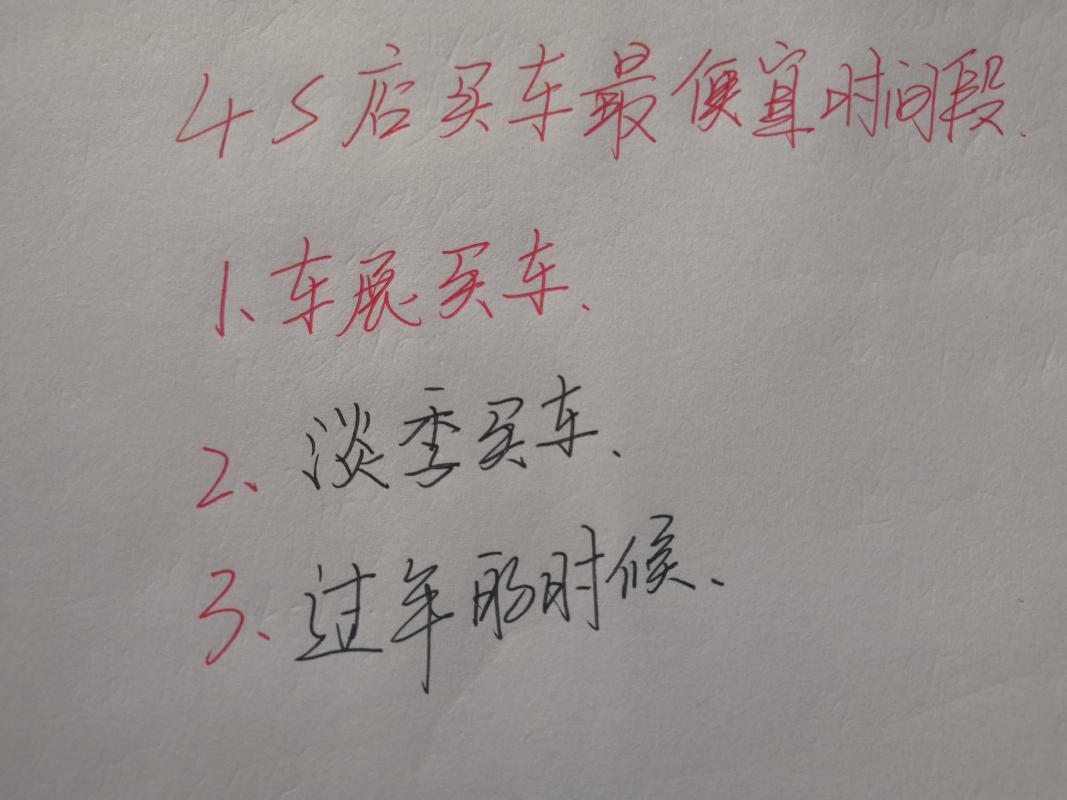 4S店买车最便宜时间段.
1、车展买车、
2、淡季买车、
3、过年的时候、